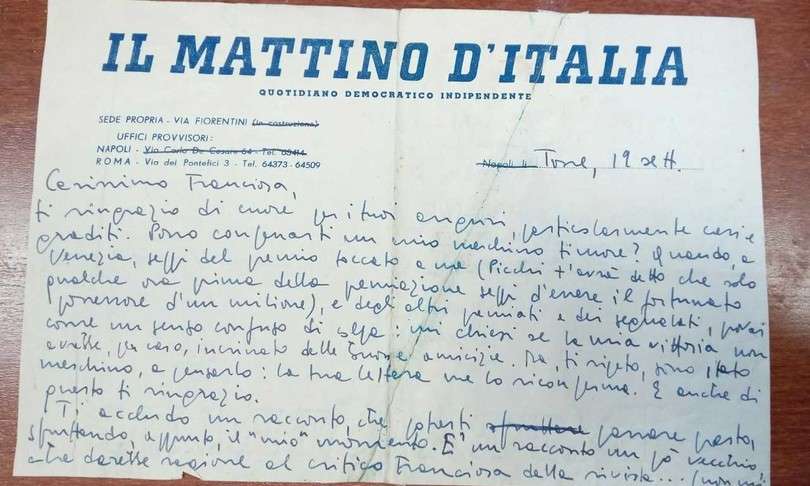 IL MATTINO D'ITALIA
QUOTIDIANO DEMOCRATICO INDIPENDENTE
SEDE PROPRIA - VIA FIORENTINI (in costruzione)
UFFICI PROVVISORI:
NAPOLI - Via Carlo De Cesare 64 - Tel. 63414
ROMA - Via dei Pontefici 3 - Tel. 64373-64509
Napoli li Torre, 19 sett.
Carissimo Franciosa,
ti ringrazio di cuore per i tuoi auguri, particolarmente cari e
graditi. Posso confessarti un mio meschino timore? Quando, a
Venezia, seppi del premio toccato a me (Picchi t'avrà detto che solo
qualche ora prima della premiazione seppi d'essere il fortunato
possessore d'un milione), e degli altri premiati e dei segnalati, provai
come un senso confuso di : mi chiesi se la mia vittoria non
avesse, per caso, incrinato delle buone amicizie. Ma, ti ripeto, sono stato
meschino, a pensarlo: la tua lettera me lo riconferma. E anche di
questo ti ringrazio.
Ti accludo un racconto, che potresti sfruttare passare presto,
sfruttando, appunto, il "mio" momento. E' un racconto un pò vecchio,
che darebbe ragione al critico Franciosa della rivista... (non